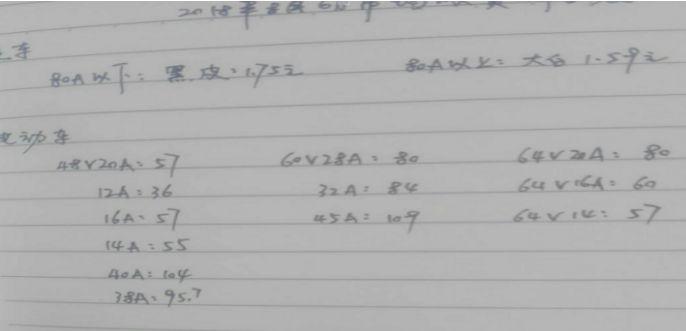 2018年8月6日
车
80A以下: 黑皮: 1.75元 80A以上: 大白 1.59元
动车
48V20A: 57 60V28A: 80 64V20A: 80
12A: 36 32A: 84 64V16A: 60
16A: 57 45A: 109 64V14: 57
14A: 55
40A: 104
38A: 95.7